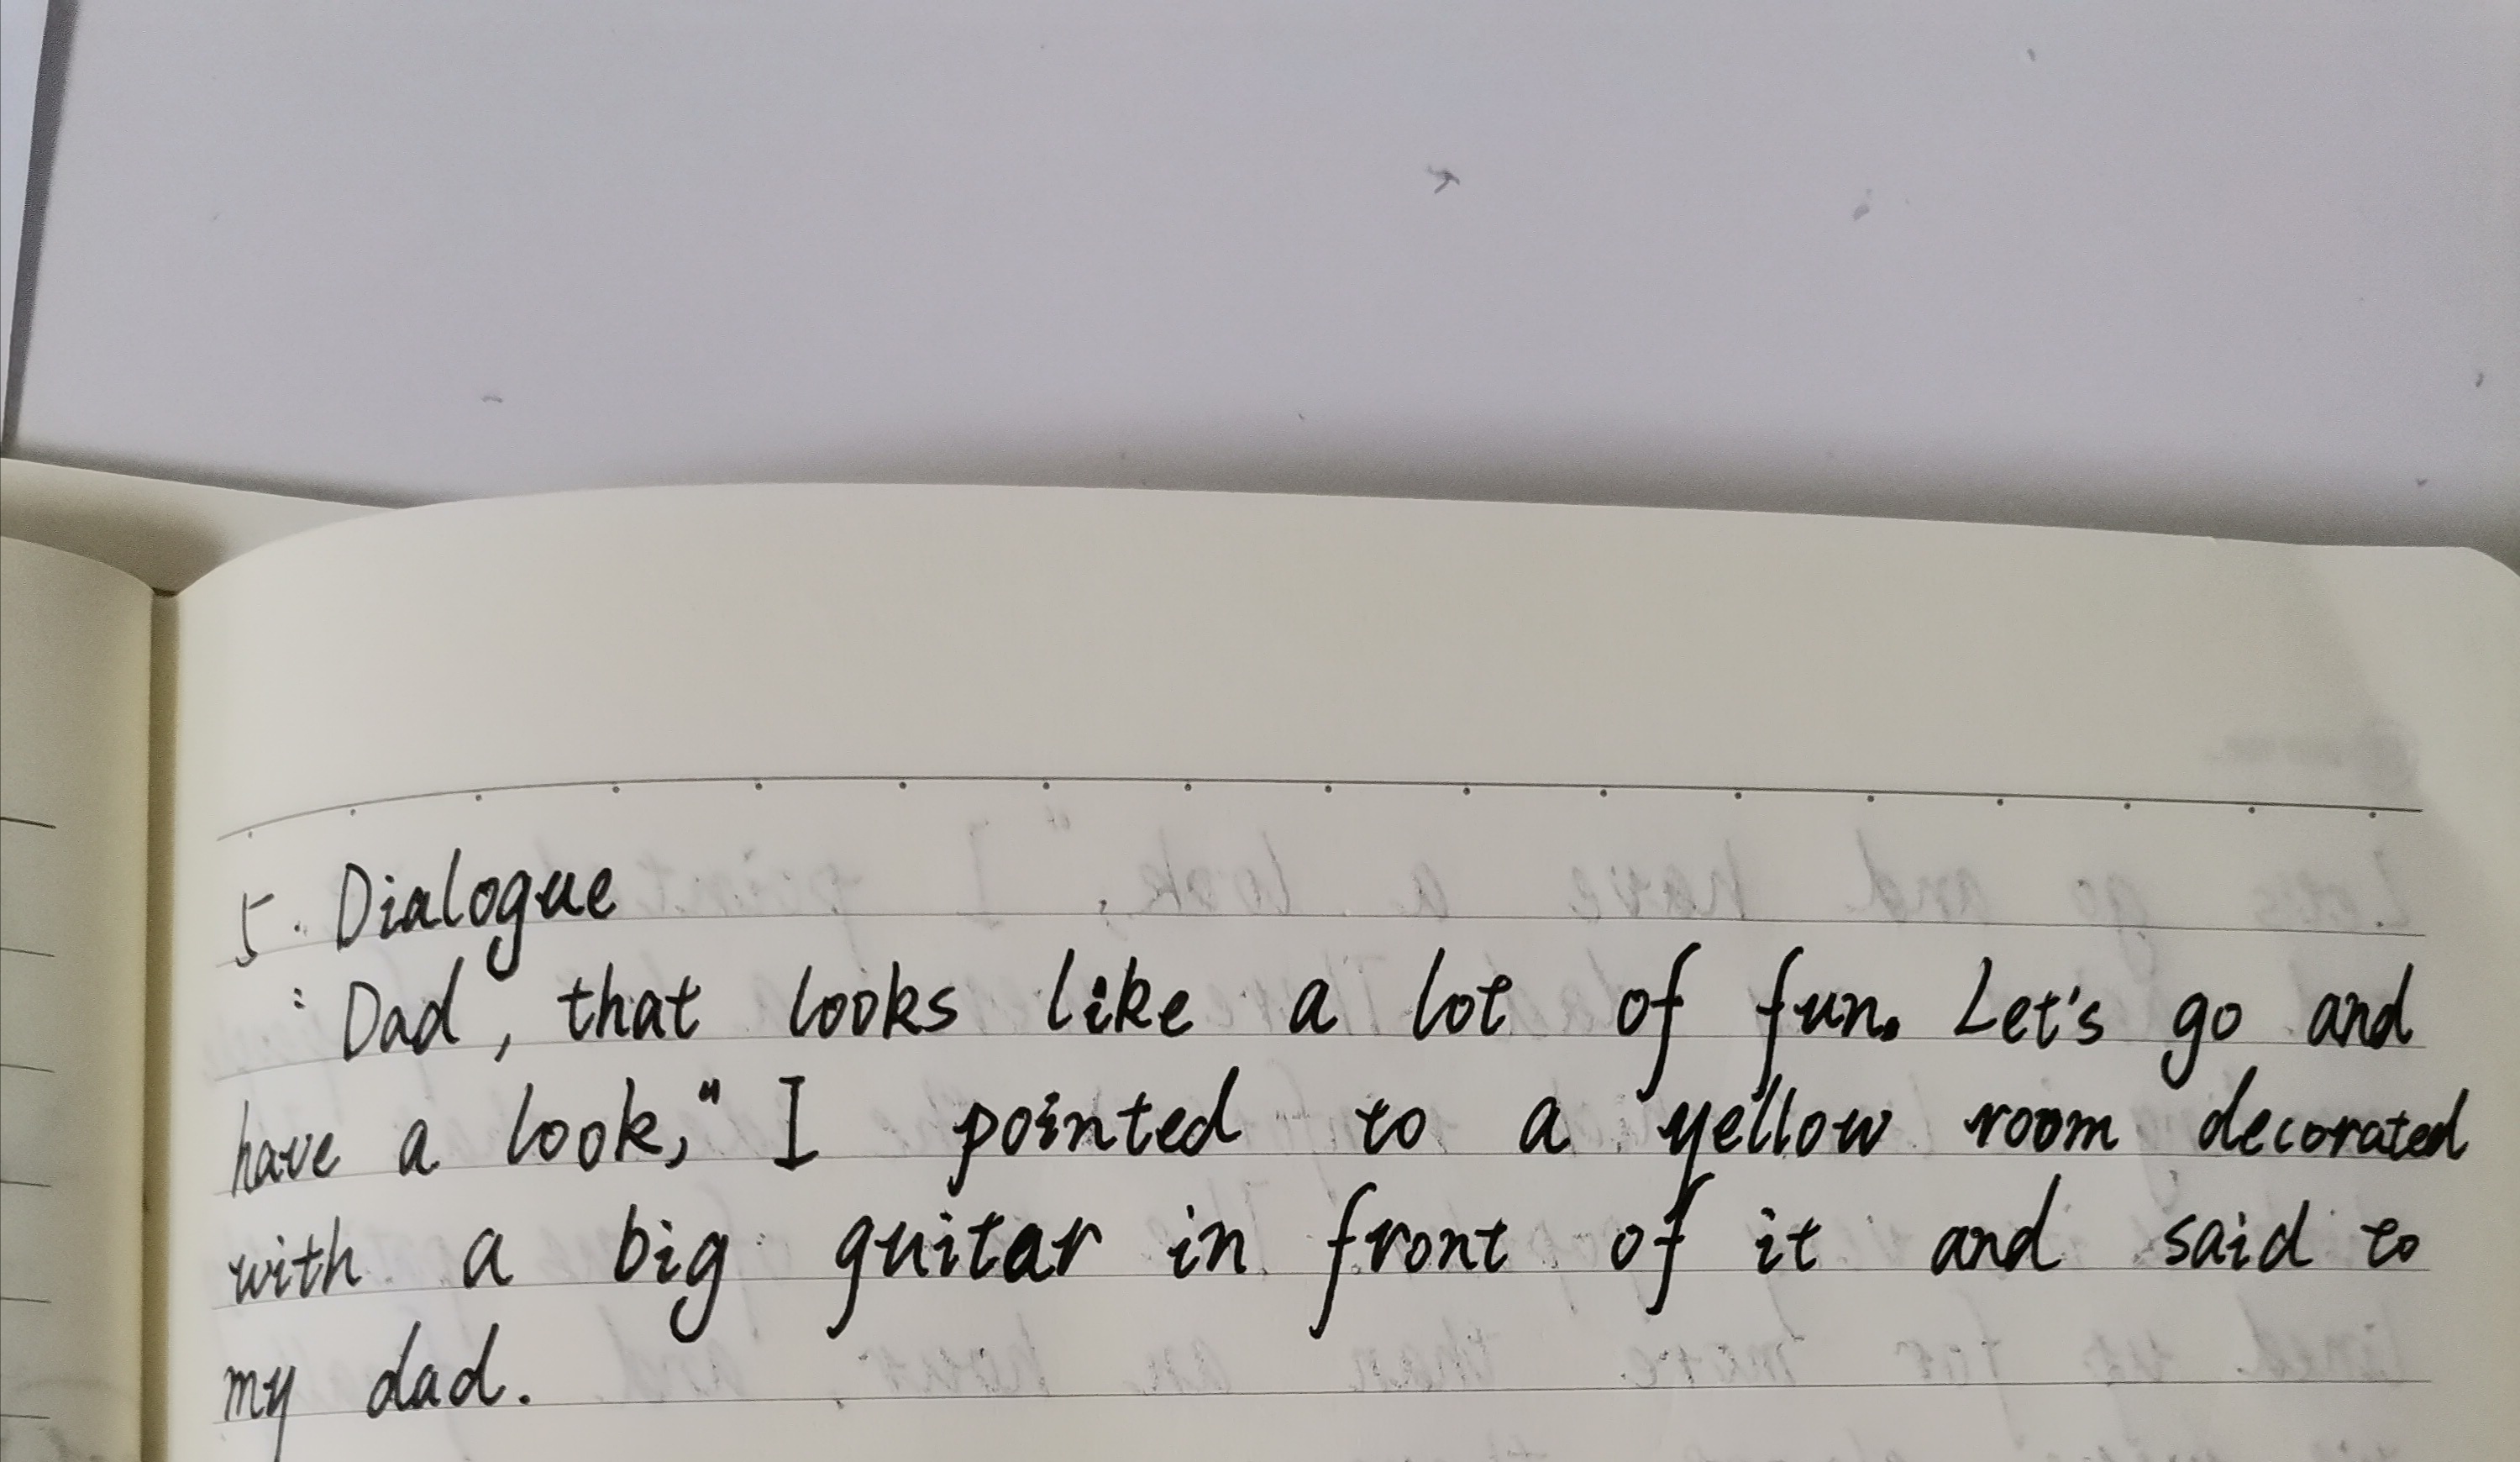 5. Dialogue
"Dad, that looks like a lot of fun. Let's go and
have a look," I pointed to a yellow room decorated
with a big guitar in front of it and said to
my dad.